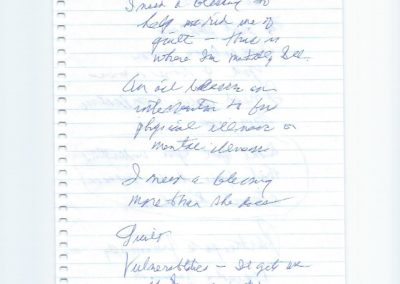 I need a blessing to
help me rid me of
guilt — this is
where I'm
An oil blessing
intervention is for
physical illness or
mental illness
I need a blessing
more than she does
Guilt
Vulnerabilities — It gets me